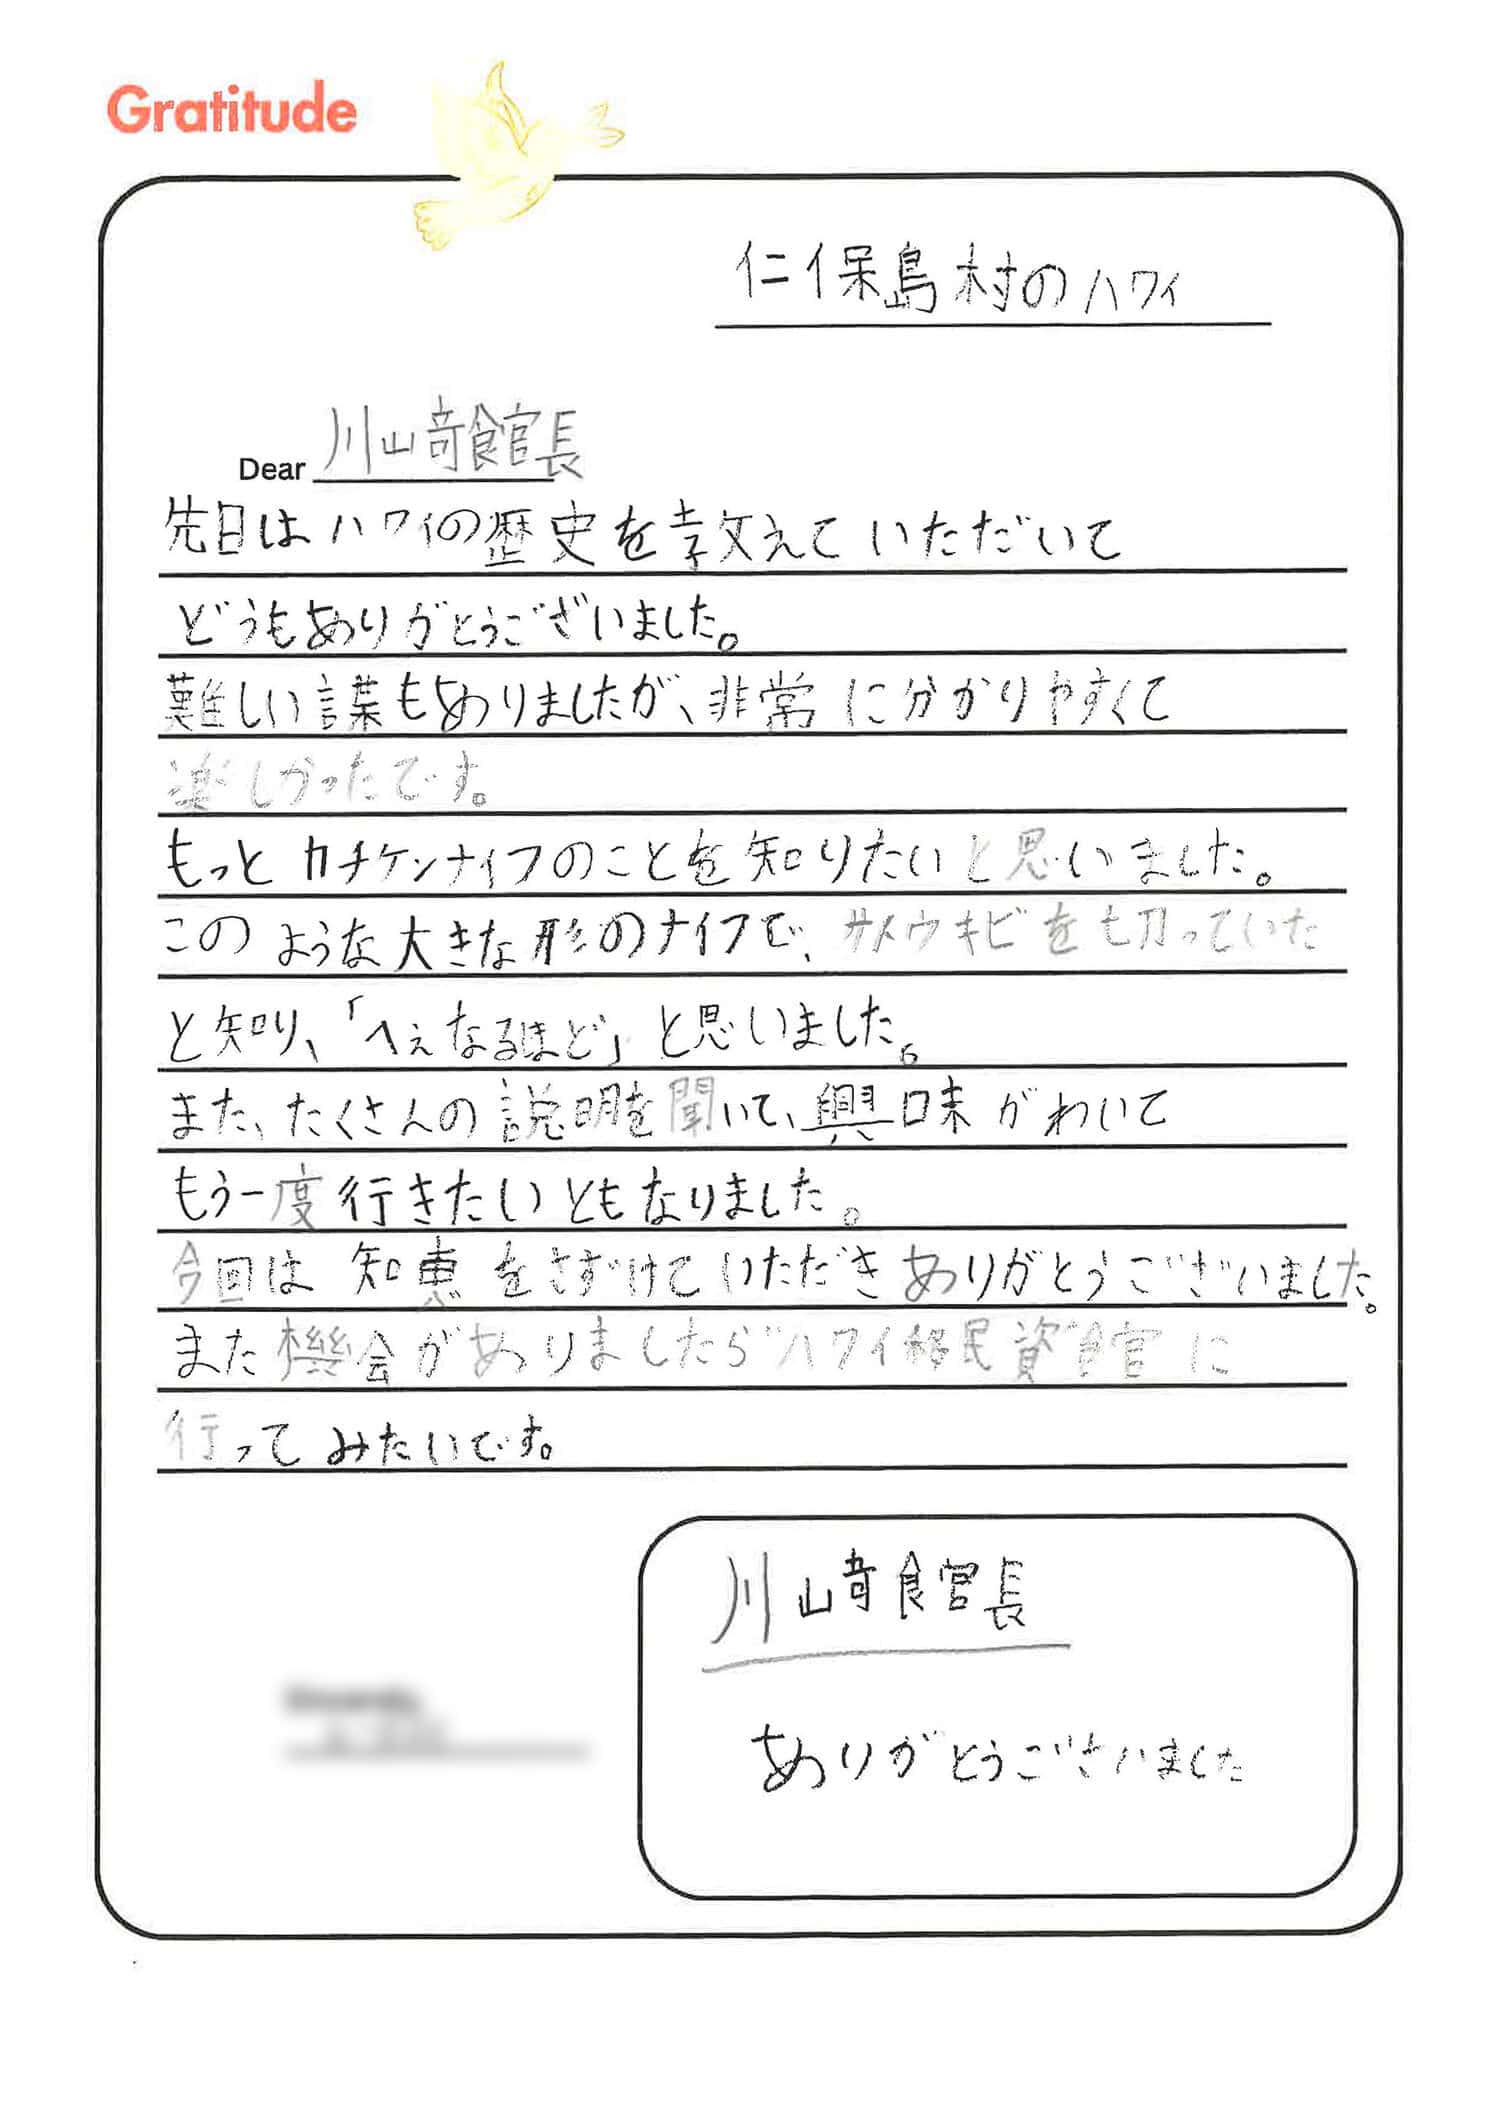 Gratitude
仁保島村のハワイ
Dear 川崎館長
先日はハワイの歴史を教えていただいて
どうもありがとうございました。
難しい言葉もありましたが、非常に分かりやすくて
楽しかったです。
もっとカチケンナイフのことを知りたいと思いました。
このような大きな形のナイフで、サトウキビを切っていた
と知り、「へぇなるほど」と思いました。
また、たくさんの説明を聞いて、興味がわいて
もう一度行きたいともなりました。
今回は知恵をさずけていただきありがとうございました。
また機会がありましたら"ハワイ移民資館に
行ってみたいです。
川崎館長
ありがとうございました